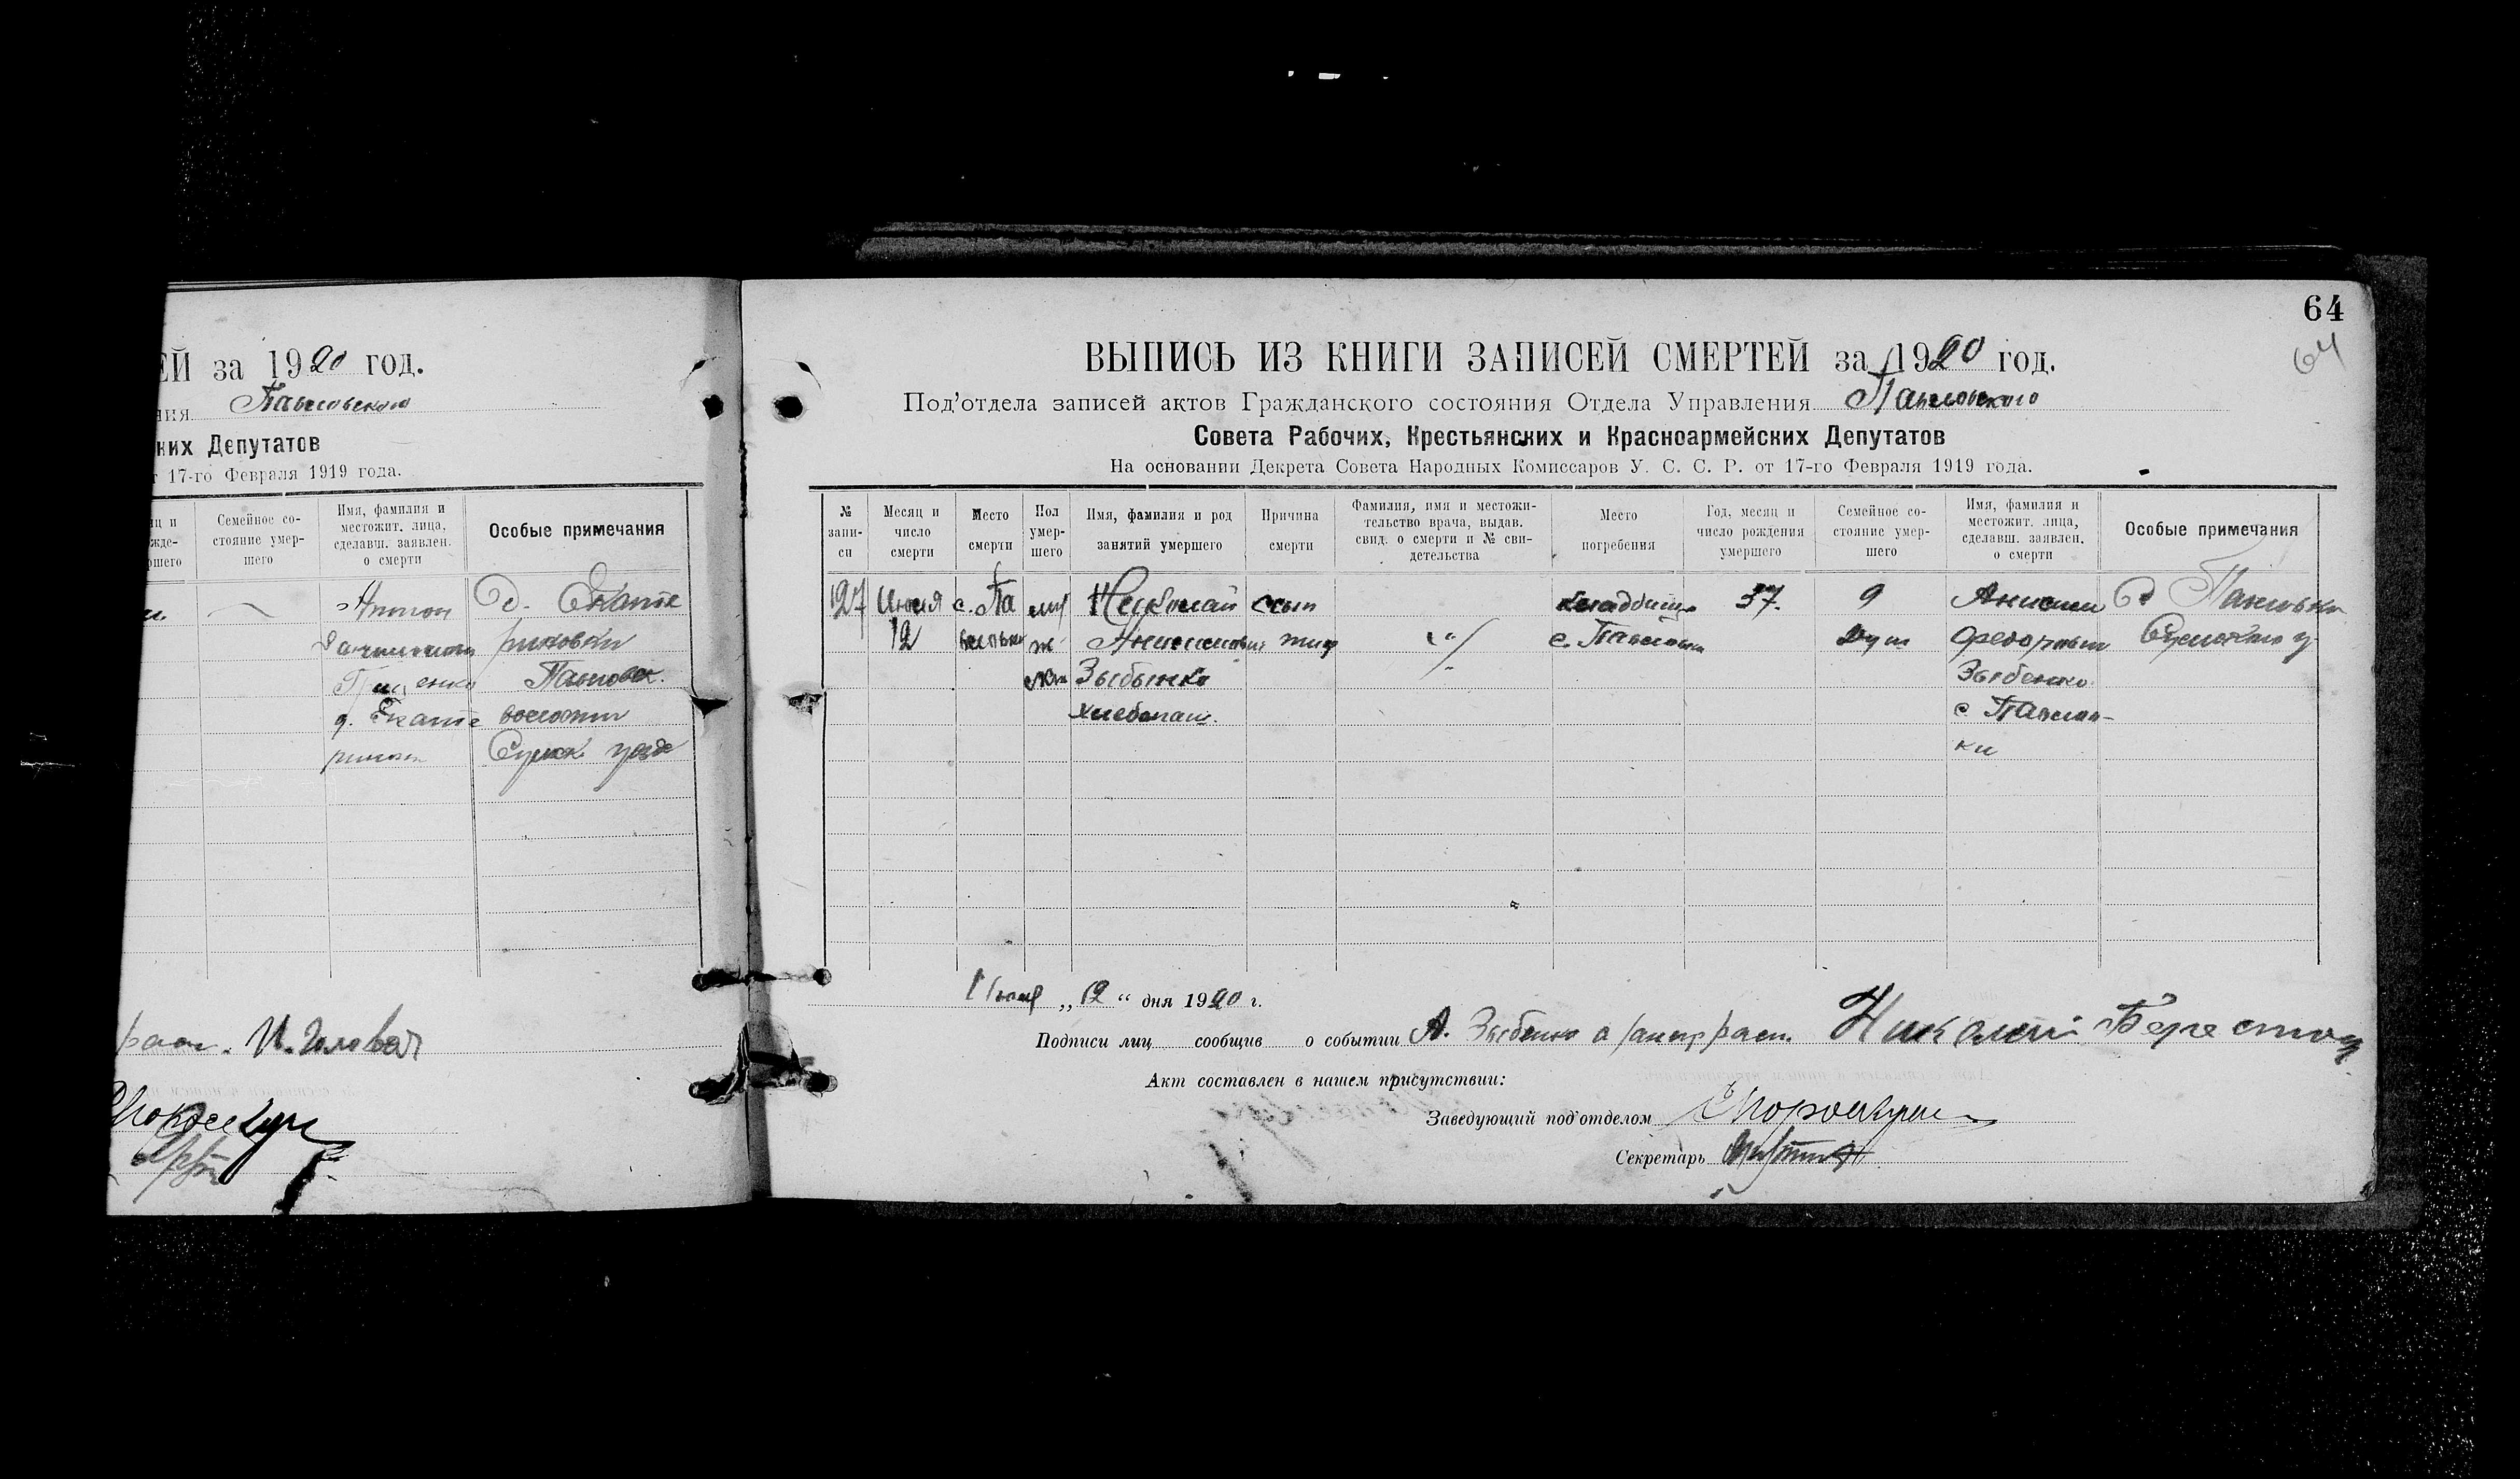 ЕЙ за 1920 год.
ния Павловского
ких Депутатов
т 17-го Февраля 1919 года.
яц и
жде-
ршего
Семейное со-
стояние умер-
шего
Имя, фамилия и
местожит. лица,
сделавш. заявлен.
о смерти
Особые примечания
Антон
енко
д. Екате
д. Екате
риновки
Павловск.
волости
Сумск. уезда
И. Головач
64
64
ВЫПИСЬ ИЗ КНИГИ ЗАПИСЕЙ СМЕРТЕЙ за 1920 год.
Под’отдела записей актов Гражданского состояния Отдела Управления Павловского
Совета Рабочих, Крестьянских и Красноармейских Депутатов
На основании Декрета Совета Народных Комиссаров У. С. С. Р. от 17-го Февраля 1919 года.
№
запи-
си
Месяц и
число
смерти
Место
смерти
Пол
умер-
шего
Имя, фамилия и род
занятий умершего
Причина
смерти
Фамилия, имя и местожи-
тельство врача, выдав.
свид. о смерти и № сви-
детельства
Место
погребения
Год, месяц и
число рождения
умершего
Семейное со-
стояние умер-
шего
Имя, фамилия и
местожит. лица,
сделавш. заявлен.
о смерти
Особые примечания
127
Июня
12
с. Па
муж
Анисимович
Зыбынко
хлебопаш.
сып
тиф
кладбище
с. Павловки
37
9
душ
Анисим
Федорович
Зыбенко
с. Павлов-
ки
с. Павловки
Сумского у
Июня „12“ дня 1920 г.
Подписи лиц сообщив о событии А. Зыбенко а Николай
Акт составлен в нашем присутствии:
Заведующий под’отделом
Секретарь